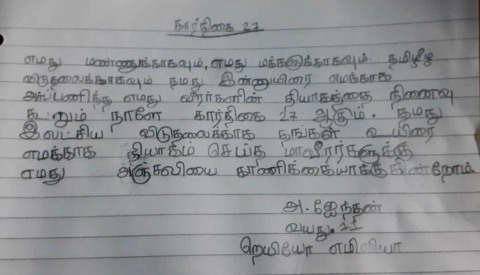 கார்திகை 27
எமது மண்ணுக்காகவும், எமது மக்களுக்காகவும் தமிழீழ
விடுதலைக்காகவும் தமது இன்னுயிரை எமக்காக
அர்ப்பணித்த எமது வீரர்களின் தியாகத்தை நினைவு
கூறும் நாளே கார்திகை 27 ஆகும். தமது
இலட்சிய விடுதலைக்காக தங்கள் உயிரை
எமக்காக தியாகம் செய்த மாவீரர்களுக்கு
எமது அஞ்சலியை காணிக்கையாக்குகின்றோம்.
அ. ஐந்தன்
வயது. 11
றெயியோ எமிலியா